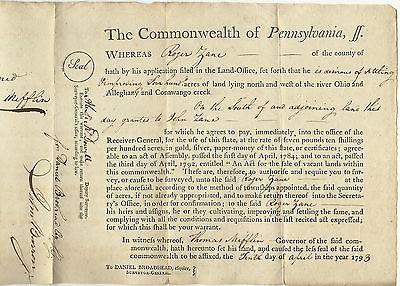 The Commonwealth of Pennsylvania, ſſ.
WHEREAS Roger Zane of the county of
hath by his application filed in the Land-Office, ſet forth that he is desirous of settling
acres of land lying north and weſt of the river Ohio and
Alleghany and Conawango creek
On the South of and adjoining land this
day granted to John Zane
for which he agrees to pay, immediately, into the office of the
Receiver-General, for the uſe of this ſtate, at the rate of ſeven pounds ten ſhillings
per hundred acres, in gold, ſilver, paper-money of this ſtate, or certificates; agree-
able to an act of Aſſembly, paſſed the firſt day of April, 1784; and to an act, paſſed
the third day of April, 1792, entitled "An Act for the ſale of vacant lands within
this commonwealth." Theſe are, therefore, to authoriſe and require you to ſurvey,
or cauſe to be ſurveyed, unto the ſaid Roger Zane at the
place aforeſaid, according to the method of townſhips appointed, the ſaid quantity
of acres, if not already ſurveyed, or appropriated, and to make return into the Secreta-
ry's Office, in order for confirmation; to which the ſaid Roger Zane
his heirs and aſſigns, he or they cultivating, improving and ſettling the ſame, and
complying with all other conditions and regulations in the laſt recited act expreſſed;
for which this ſhall be your warrant.
In witneſs whereof, Thomas Mifflin Governor of the ſaid com-
monwealth, hath hereto ſet his hand, and cauſed the leſs ſeal of the ſaid common-
wealth to be affixed, the Tenth day of April in the year 1793
To DANIEL BRODHEAD, eſquire,
SURVEYOR-GENERAL.
Seal
Mifflin
for Daniel Brodhead